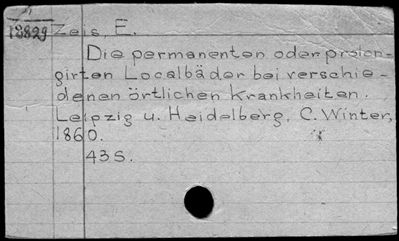 18829 Zeis, E.
Die permanenten oder prolon-
girten Localbäder bei verschie-
denen örtlichen Krankheiten.
Leipzig u. Heidelberg, C. Winter,
1860.
43 S.